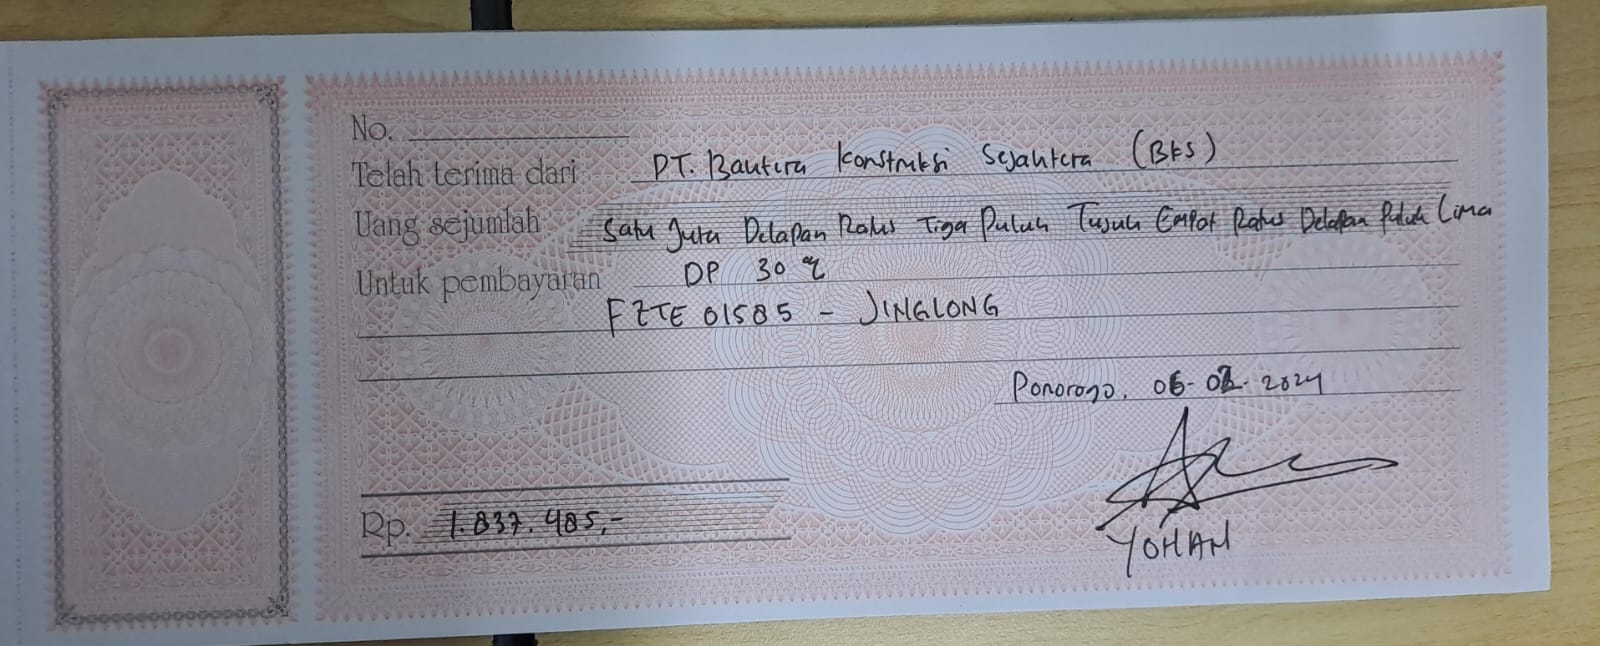 No.
Telah terima dari PT. Bautera Konstruksi Sejahtera (BKS)
Uang sejumlah Satu Juta Delapan Ratus Tiga Puluh Tujuh Empat Ratus Delapan Puluh Lima
Untuk pembayaran DP 30 %
FZTE 01585 - JINGLONG
Ponorogo, 06-02-2024
Rp. 1.837.485,-
YOHAN